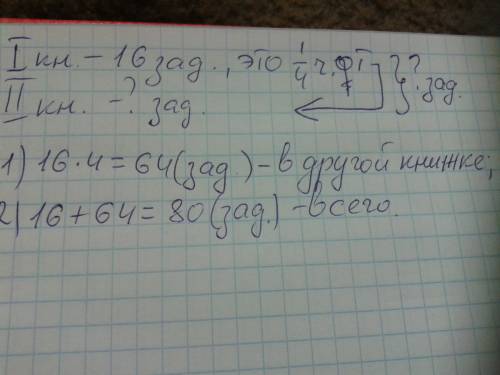 I кн. - 16 зад., это 1/4 ч. от } ? зад.
II кн. - ? зад.
1) 16·4=64(зад.) - в другой книжке;
2) 16+64=80(зад.) - всего.